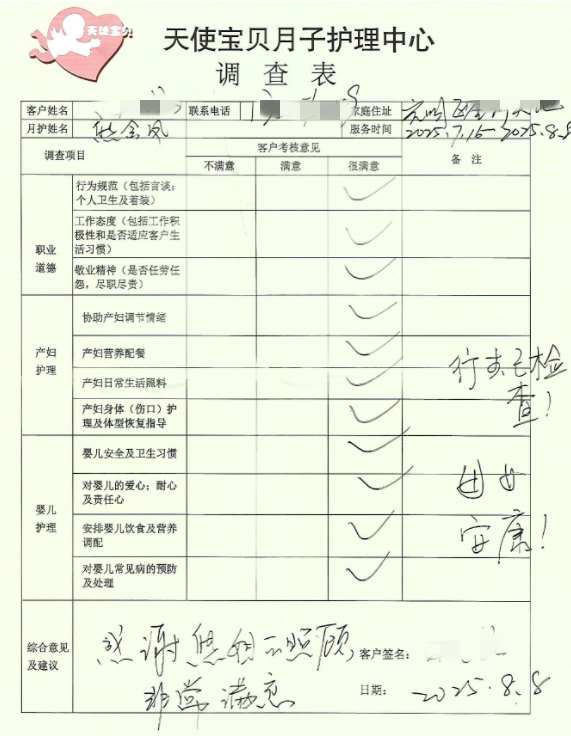 天使宝贝
天使宝贝月子护理中心
调查表
客户姓名 联系电话 家庭住址
月护姓名 熊金凤 服务时间 2025.7.15-2025.8.8
调查项目 客户考核意见 备注
不满意 满意 很满意
职业道德
行为规范(包括言谈;个人卫生及着装)
工作态度(包括工作积极性和是否适应客户生活习惯)
敬业精神(是否任劳任怨,尽职尽责)
产妇护理
协助产妇调节情绪
产妇营养配餐
产妇日常生活照料
产妇身体(伤口)护理及体型恢复指导
行李已检查!
婴儿护理
婴儿安全及卫生习惯
对婴儿的爱心;耐心及责任心
安排婴儿饮食及营养调配
对婴儿常见病的预防及处理
母女安康!
综合意见及建议
感谢熊姐的照顾
非常满意
客户签名:
日期: 2025.8.8